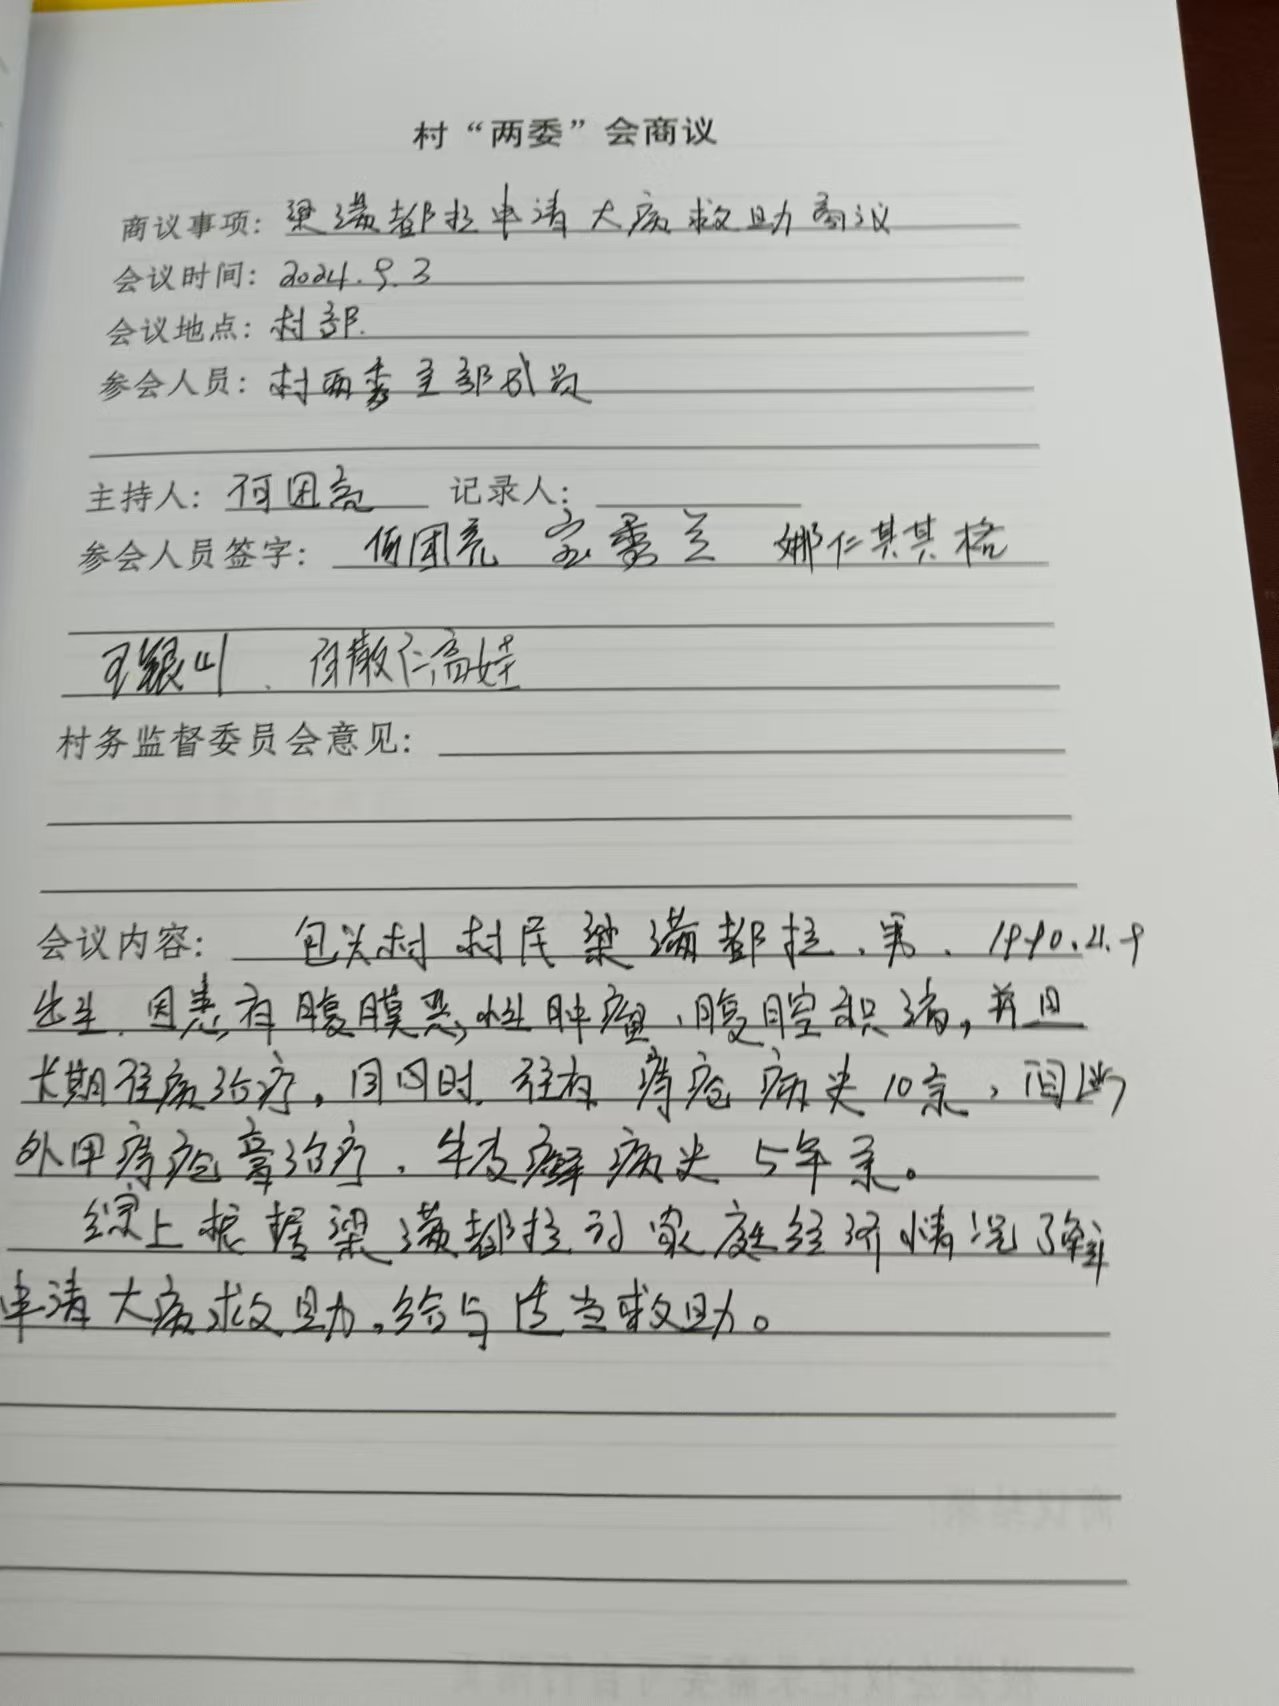 村“两委”会商议
商议事项：梁满都拉申请大病救助商议
会议时间：2024.9.3
会议地点：村部.
参会人员：村两委全部成员
主持人：何团亮 记录人：
参会人员签字：何团亮 宝秀兰 娜仁其其格
王银山 敖仁高娃
村务监督委员会意见：
会议内容：包头村村民梁满都拉、男、
出生.因患有腹膜恶性肿瘤、腹腔积液,并且
长期住病治疗,同时.往有痔疮病史10余,间断
外用痔疮膏治疗.牛皮癣病史5年余。
综上根据梁满都拉的家庭经济情况了解
申请大病救助,给与适当救助。